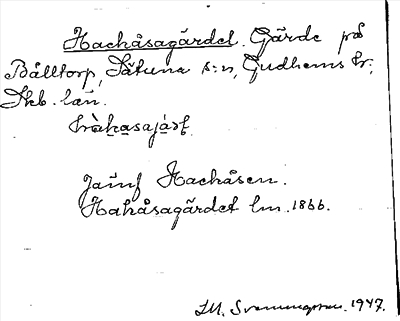 Hachåsagärdet. Gärde på
Bålltorp, Sätuna s:n, Gudhems hr;
Skb. län.
Jämf Hachåsen.
Hahåsagärdet lm. 1866.
1947.